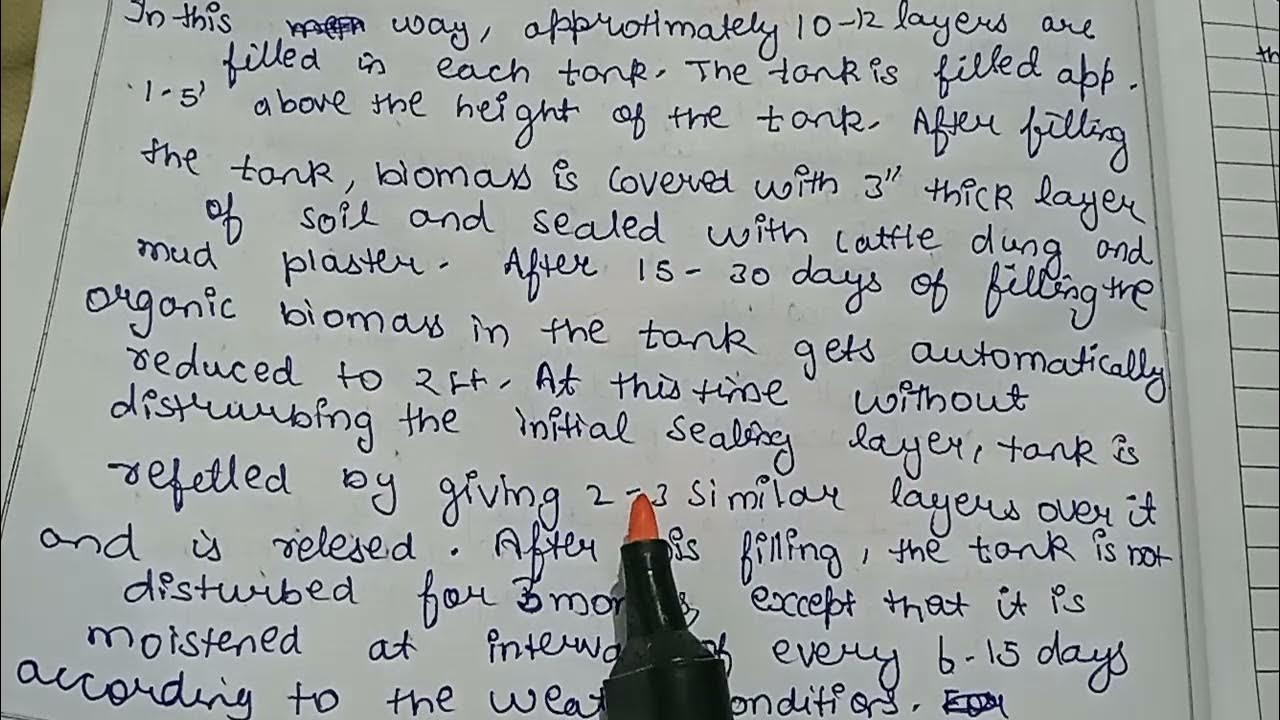 In this way, approximately 10-12 layers are
filled in each tank. The tank is filled app.
1.5' above the height of the tank. After filling
the tank, biomass is covered with 3" thick layer
of soil and sealed with cattle dung and
mud plaster. After 15-30 days of filling the
organic biomass in the tank gets automatically
reduced to 2 ft. At this time without
distrurbing the initial sealing layer, tank is
refelled by giving 2-3 similar layers over it
and is relesed. After is filling, the tank is not
disturbed for 3 mon, except that it is
moistened at interva of every 6-15 days
according to the weat onditions.
th